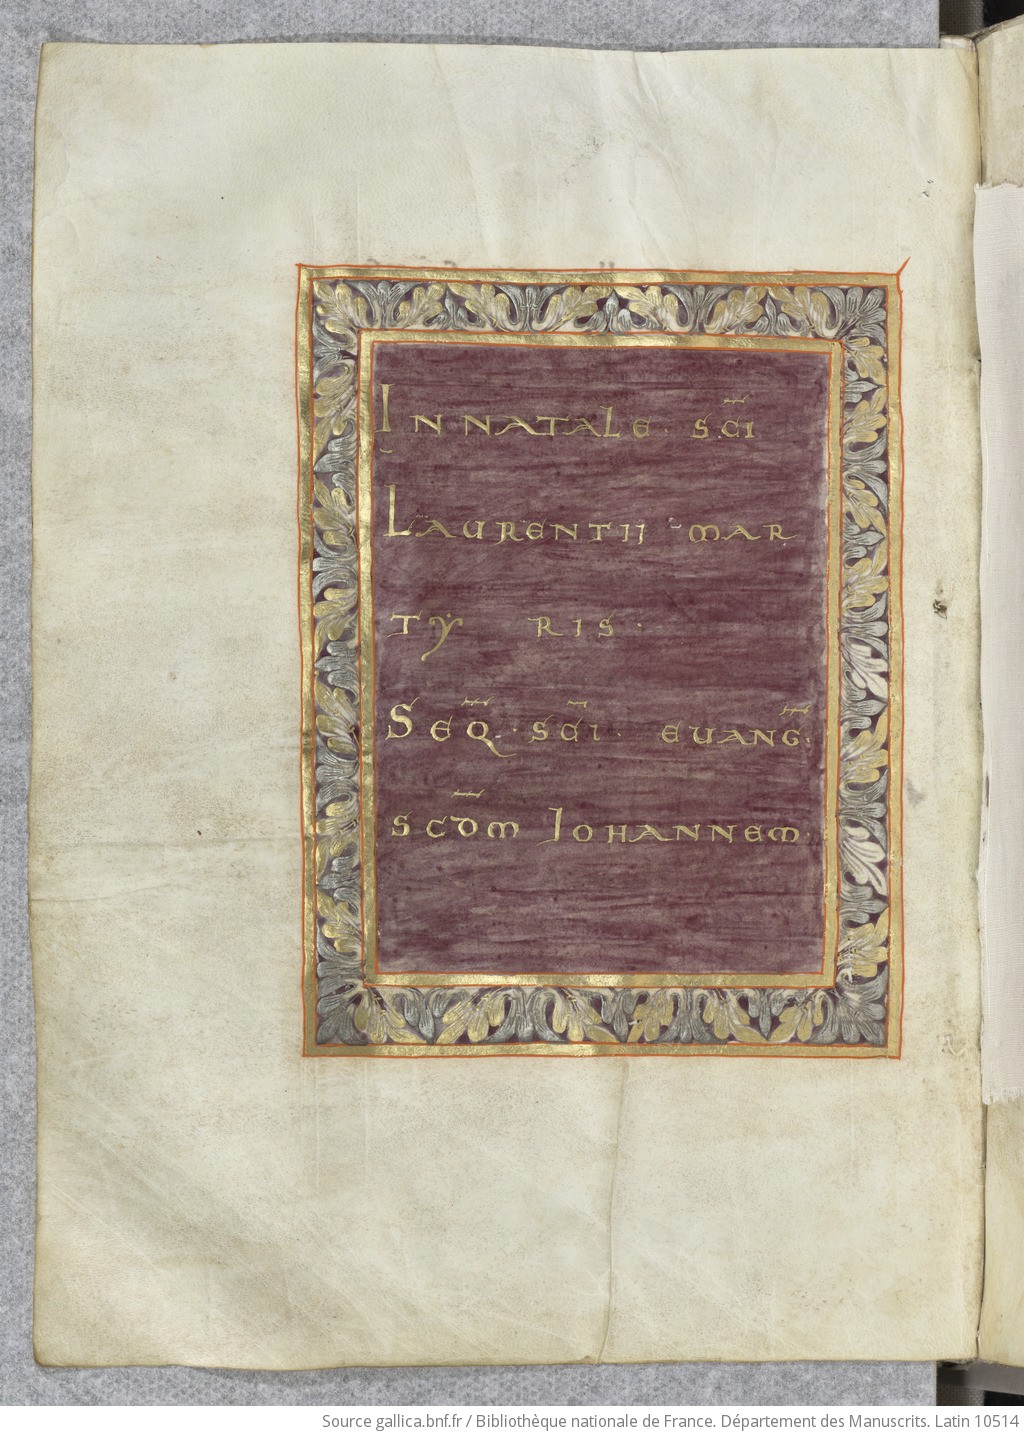 IN NATALE · SC̄I
LAURENTII MAR
TY RIS ·
SEQ̄ · SC̄I · EUANḠ ·
SC̄DM IOHANNEM ·
Source gallica.bnf.fr / Bibliothèque nationale de France. Département des Manuscrits. Latin 10514